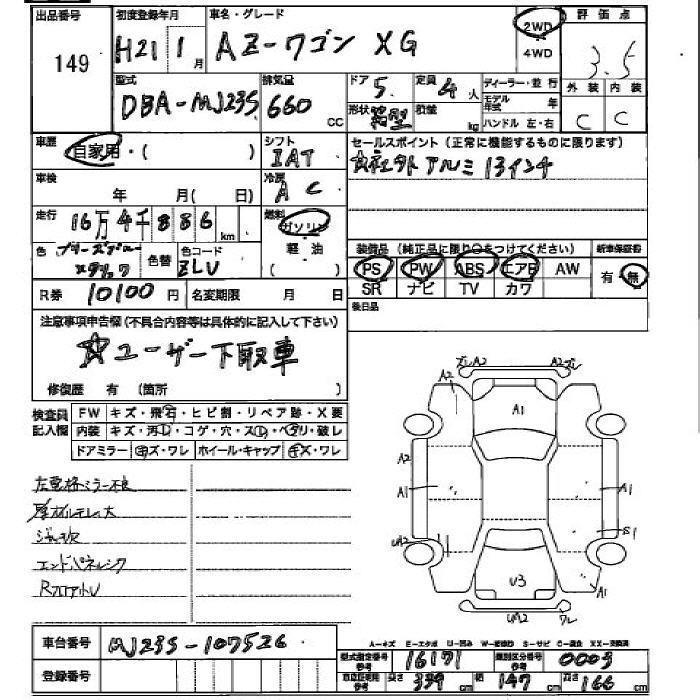 出品番号 初度登録年月 車名・グレード 評価点
149 H21年 1月 AZ-ワゴン XG 2WD 4WD 3.5
型式 排気量 ドア 5 定員 4人 ディーラー・並行 外装 内装
DBA-MJ23S 660 CC 形状 箱型 積載 kg モデル年式 年 ハンドル 左・右 C C
車歴 自家用・( ) シフト IAT セールスポイント(正常に機能するものに限ります)
車検 年 月( 日) 冷房 AC 社外アルミ 13インチ
走行 16万4千886km 燃料 ガソリン
色 色替 色コード ZLV 軽油 ( ) 装備品(純正品に限り○をつけてください) 新車保証書
PS PW ABS エアB AW 有・無
R券 10100円 名変期限 月 日 SR ナビ TV カワ
後日品
注意事項申告欄(不具合内容等は具体的に記入して下さい)
☆ユーザー下取車
修復歴 有 (箇所 )
検査員記入欄 FW キズ・飛石・ヒビ割・リペア跡・X要
内装 キズ・汚し・コゲ・穴・スレ・ヘタリ・破レ
ドアミラー キズ・ワレ ホイール・キャップ キズ・ワレ
ズレ A2 A2 ズレ
A2 A1
A2
A1 A1
UA2 S1
U3 A1
UA2 ワレ
エンドパネル
車台番号 MJ23S-107526
登録番号
A-キズ E-エクボ U-凹み W-波 S-サビ C-腐食 XX-交換済
型式指定番号 参考 16171 類別区分番号 参考 0003
車庫証明用 参考 長さ 339cm 幅 147cm 高さ 166cm